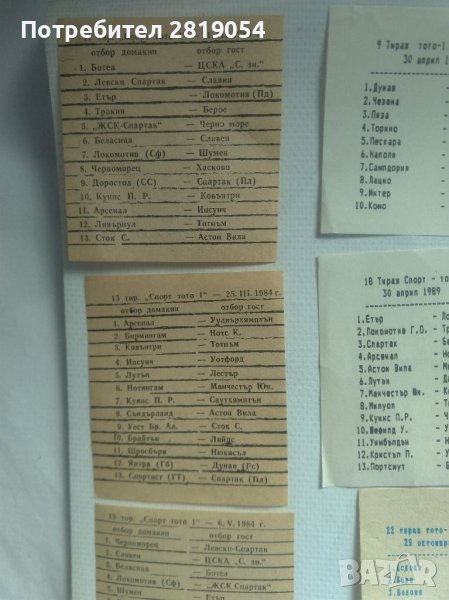 Потребител 2819054
отбор домакин отбор гост
1. Ботев — ЦСКА „С. зн."
2. Левски Спартак — Славия
3. Етър — Локомотив (Пд)
4. Тракия — Берое
5. „ЖСК-Спартак" — Черно море
6. Беласица — Сливен
7. Локомотив (Сф) — Шумен
8. Черноморец — Хасково
9. Доростол (СС) — Спартак (Пл)
10. Куинс П. Р. — Ковънтри
11. Арсенал — Ипсуич
12. Ливърпул — Тотнъм
13. Сток С. — Астон Вила
13 тир. „Спорт тото 1" — 25. III. 1984 г.
отбор домакин отбор гост
1. Арсенал — Уулвърхямптън
2. Бирмингам — Нотс К.
3. Ковънтри — Тотнъм
4. Ипсуич — Уотфорд
5. Лутън — Лестър
6. Нотингам — Манчестър Юн.
7. Куинс П. Р. — Саутхямптън
8. Съндърланд — Астон Вила
9. Уест Бр. Ал. — Сток С.
10. Брайтън — Лийдс
11. Шросбъри — Нюкясъл
12. Янтра (Гб) — Дунав (Рс)
13. Спортист (ГТ) — Спартак (Пл)
19 тир. „Спорт тото 1" — 6. V. 1984 г.
отбор домакин отбор гост
1. Черноморец — Левски-Спартак
2. Сливен — ЦСКА „С. зн."
3. Беласица — Ботев
4. Локомотив (Сф) — „ЖСК Спартак"
5. Шумен — Етър
9 Тираж тото-1
30 април 1
1.Дунав
2.Чезена
3.Пиза
4.Торино
5.Пескара
6.Наполи
7.Сампдория
8.Лацио
9.Интер
10.Комо
18 Тираж Спорт - то
30 април 1989
1.Етър - Ло
2.Локомотив Г.О. - Тр
3.Спартак - Бе
4.Арсенал - Но
5.Астон Вила - Ми
6.Лутън - Да
7.Манчестър Юн. - Ко
8.Милуол - Т
9.Куинс П.Р. - Ч
10.Шефилд У.
11.Уимбълдън - Н
12.Кристъл П.
13.Портсмут - Б
22 тираж тото-
29 октомври
BAZAR